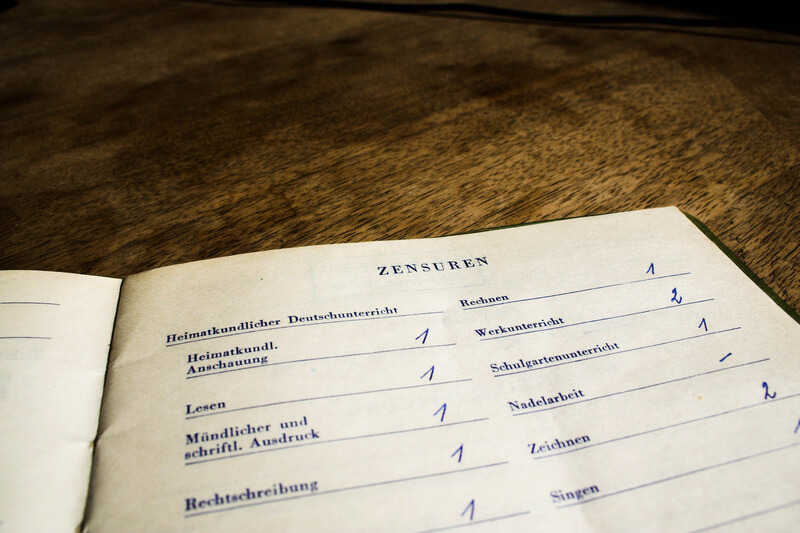 ZENSUREN
Heimatkundlicher Deutschunterricht
Heimatkundl.
Anschauung 1
Lesen 1
Mündlicher und
schriftl. Ausdruck 1
Rechtschreibung 1
1
Rechnen 1
Werkunterricht 2
Schulgartenunterricht 1
Nadelarbeit –
Zeichnen 2
Singen